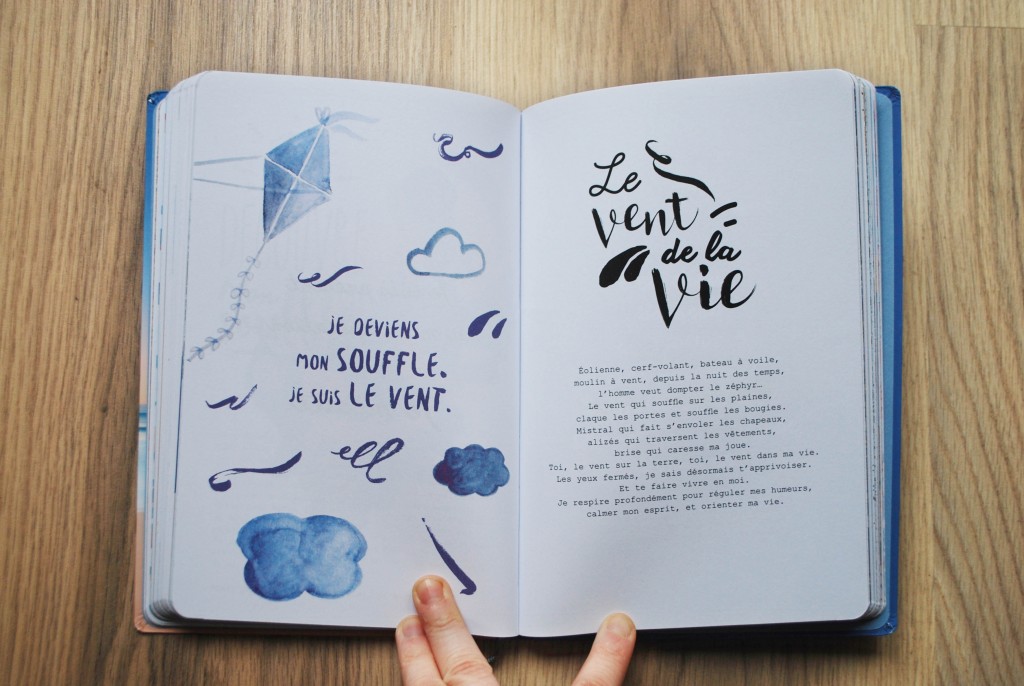 JE DEVIENS
MON SOUFFLE.
JE SUIS LE VENT.
Le
vent
de la
vie
Éolienne, cerf-volant, bateau à voile,
moulin à vent, depuis la nuit des temps,
l'homme veut dompter le zéphyr…
Le vent qui souffle sur les plaines,
claque les portes et souffle les bougies.
Mistral qui fait s'envoler les chapeaux,
alizés qui traversent les vêtements,
brise qui caresse ma joue.
Toi, le vent sur la terre, toi, le vent dans ma vie.
Les yeux fermés, je sais désormais t'apprivoiser.
Et te faire vivre en moi.
Je respire profondément pour réguler mes humeurs,
calmer mon esprit, et orienter ma vie.